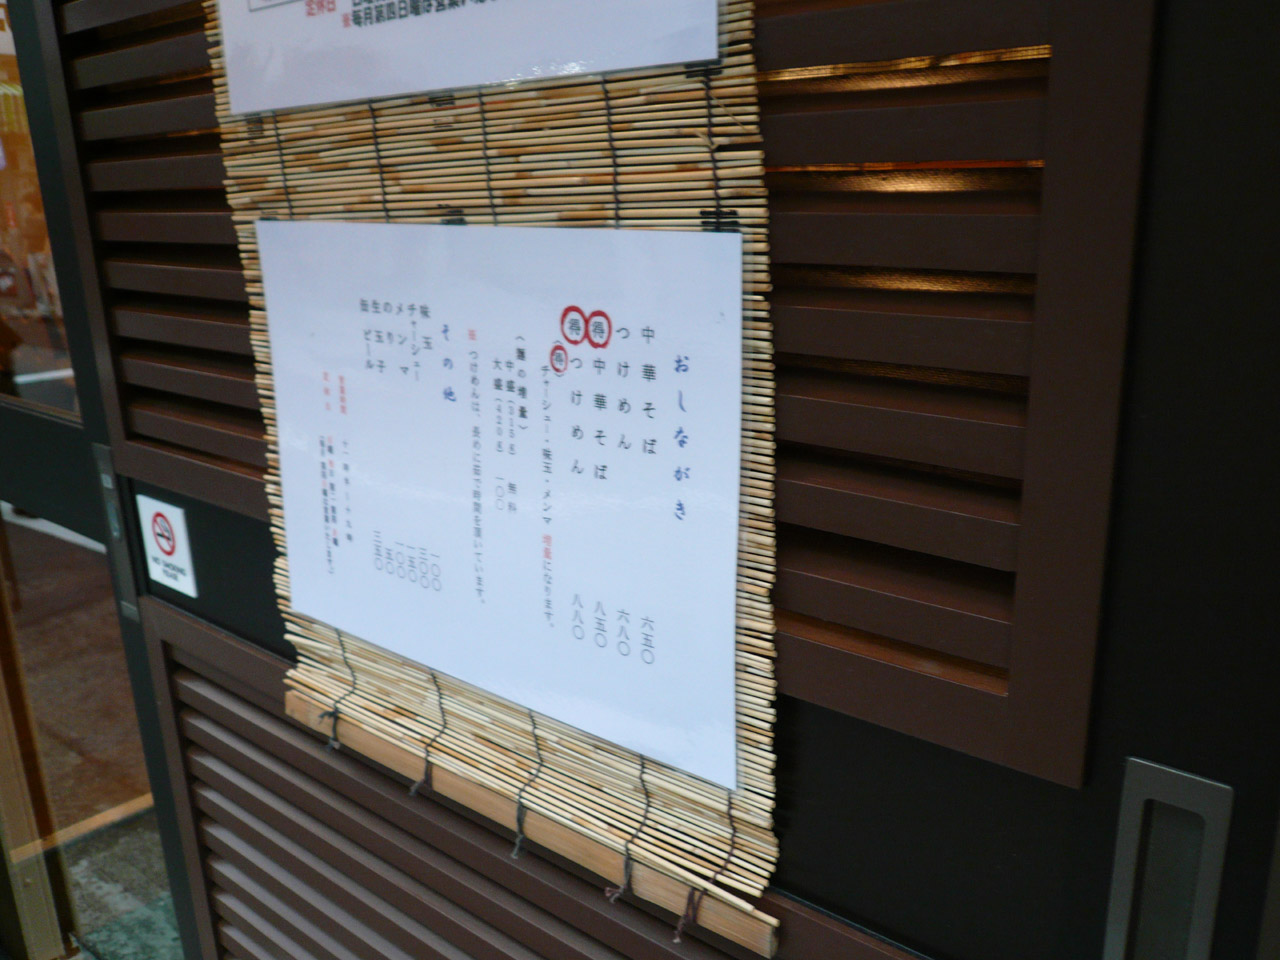 定休日
毎月第四日曜は営業
おしながき
中華そば 六五〇
つけめん 六八〇
得 中華そば 八五〇
得 つけめん 八八〇
(得)チャーシュー・味玉・メンマ 増量になります。
(麺の増量)
中盛(315g) 無料
大盛(420g) 一〇〇
つけめんは、長めに茹で時間を頂いています。
その他
味玉 一〇〇
チャーシュー 三〇〇
メンマ 一五〇
のり 一〇〇
生玉子 五〇
缶ビール 三五〇
営業時間
定休日
NO SMOKING
PLEASE